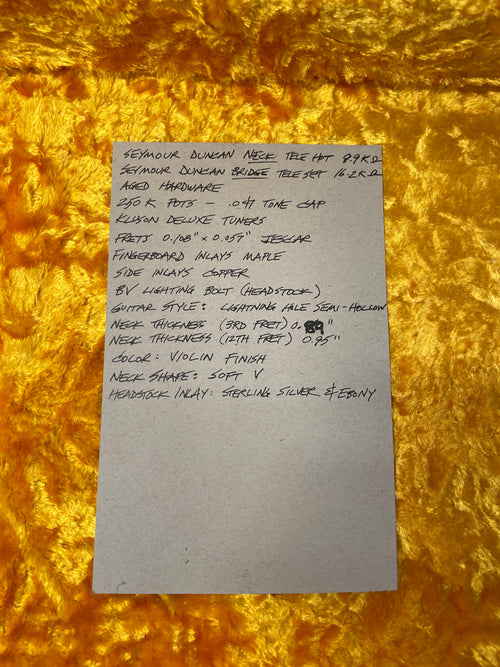 SEYMOUR DUNCAN NECK TELE HOT 9.9KΩ
SEYMOUR DUNCAN BRIDGE TELE SET 16.2KΩ
AGED HARDWARE
250K POTS - .047 TONE CAP
KLUSON DELUXE TUNERS
FRETS 0.108" x 0.057" JESCAR
FINGERBOARD INLAYS MAPLE
SIDE INLAYS COPPER
BV LIGHTING BOLT (HEADSTOCK)
GUITAR STYLE: LIGHTNING HOLE SEMI-HOLLOW
NECK THICKNESS (3RD FRET) 0.89"
NECK THICKNESS (12TH FRET) 0.95"
COLOR: VIOLIN FINISH
NECK SHAPE: SOFT V
HEADSTOCK INLAY: STERLING SILVER & EBONY